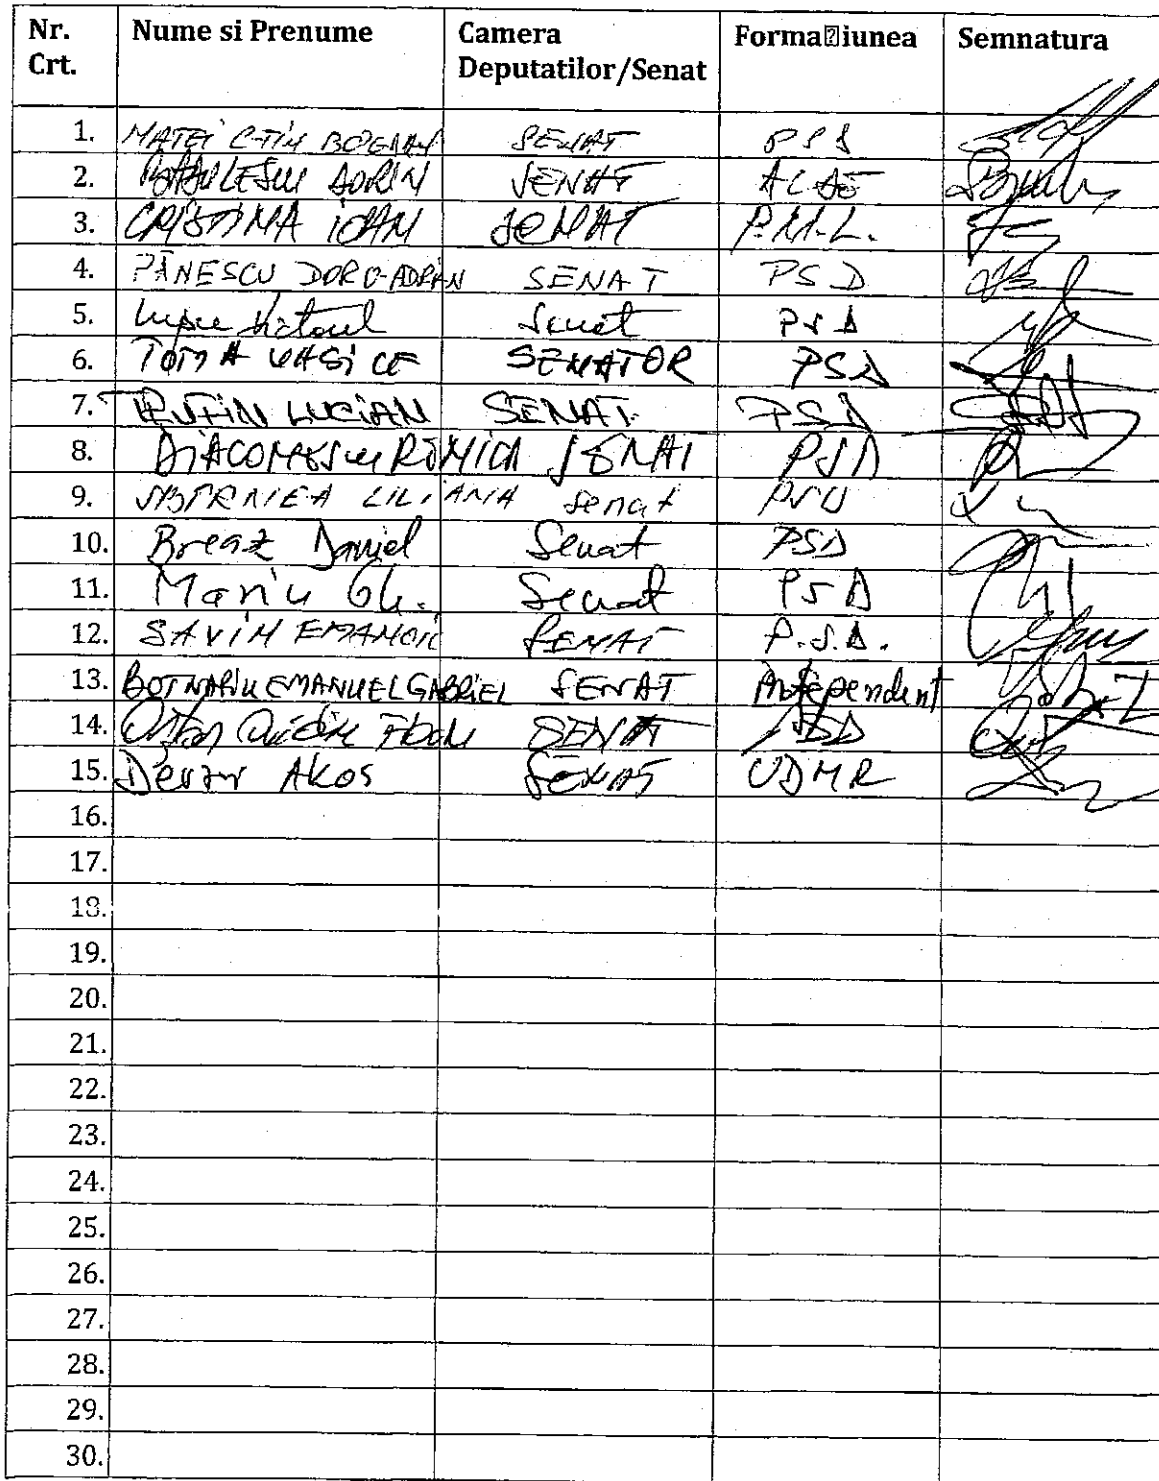 Nr. Crt. Nume si Prenume Camera Deputatilor/Senat Forma⍰iunea Semnatura
1. MATEI C-TIN BOGDAN SENAT PSD
2. BĂDULESCU DORIN SENAT ALDE
3. CRISTINA IOAN SENAT P.N.L.
4. PĂNESCU DORU-ADRIAN SENAT PSD
5. Lupu Victorel Senat PSD
6. TOMA VASILE SENATOR PSD
7. LUCIAN SENAT PSD
8. DIACONESCU RENICA SENAT PSD
9. SBÎRNEA LILIANA Senat PSD
10. Breaz Daniel Senat PSD
11. Marin Gh. Senat PSD
12. SAVIN EMANOIL SENAT P.S.D.
13. BOTNARIU EMANUEL GABRIEL SENAT Independent
14. SENAT PSD
15. Akos SENAT UDMR
16.
17.
18.
19.
20.
21.
22.
23.
24.
25.
26.
27.
28.
29.
30.